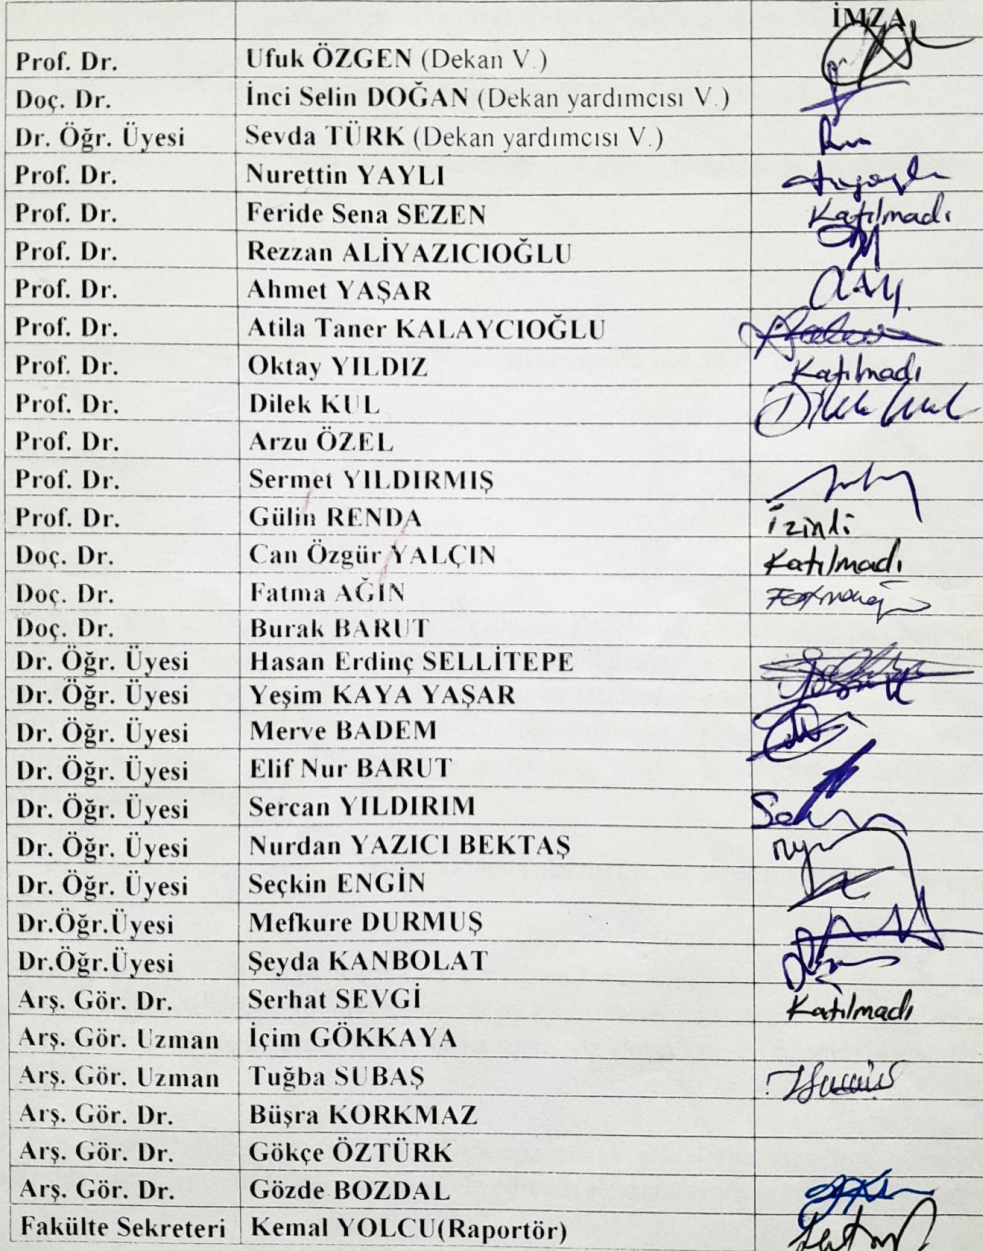 İMZA
Prof. Dr. Ufuk ÖZGEN (Dekan V.)
Doç. Dr. İnci Selin DOĞAN (Dekan yardımcısı V.)
Dr. Öğr. Üyesi Sevda TÜRK (Dekan yardımcısı V.)
Prof. Dr. Nurettin YAYLI
Prof. Dr. Feride Sena SEZEN Katılmadı
Prof. Dr. Rezzan ALİYAZICIOĞLU
Prof. Dr. Ahmet YAŞAR
Prof. Dr. Atila Taner KALAYCIOĞLU
Prof. Dr. Oktay YILDIZ Katılmadı
Prof. Dr. Dilek KUL Dilek Kul
Prof. Dr. Arzu ÖZEL
Prof. Dr. Sermet YILDIRMIŞ
Prof. Dr. Gülin RENDA İzinli
Doç. Dr. Can Özgür YALÇIN Katılmadı
Doç. Dr. Fatma AĞIN
Doç. Dr. Burak BARUT
Dr. Öğr. Üyesi Hasan Erdinç SELLİTEPE
Dr. Öğr. Üyesi Yeşim KAYA YAŞAR
Dr. Öğr. Üyesi Merve BADEM
Dr. Öğr. Üyesi Elif Nur BARUT
Dr. Öğr. Üyesi Sercan YILDIRIM
Dr. Öğr. Üyesi Nurdan YAZICI BEKTAŞ
Dr. Öğr. Üyesi Seçkin ENGİN
Dr.Öğr.Üyesi Mefkure DURMUŞ
Dr.Öğr.Üyesi Şeyda KANBOLAT
Arş. Gör. Dr. Serhat SEVGİ Katılmadı
Arş. Gör. Uzman İçim GÖKKAYA
Arş. Gör. Uzman Tuğba SUBAŞ
Arş. Gör. Dr. Büşra KORKMAZ
Arş. Gör. Dr. Gökçe ÖZTÜRK
Arş. Gör. Dr. Gözde BOZDAL
Fakülte Sekreteri Kemal YOLCU(Raportör)